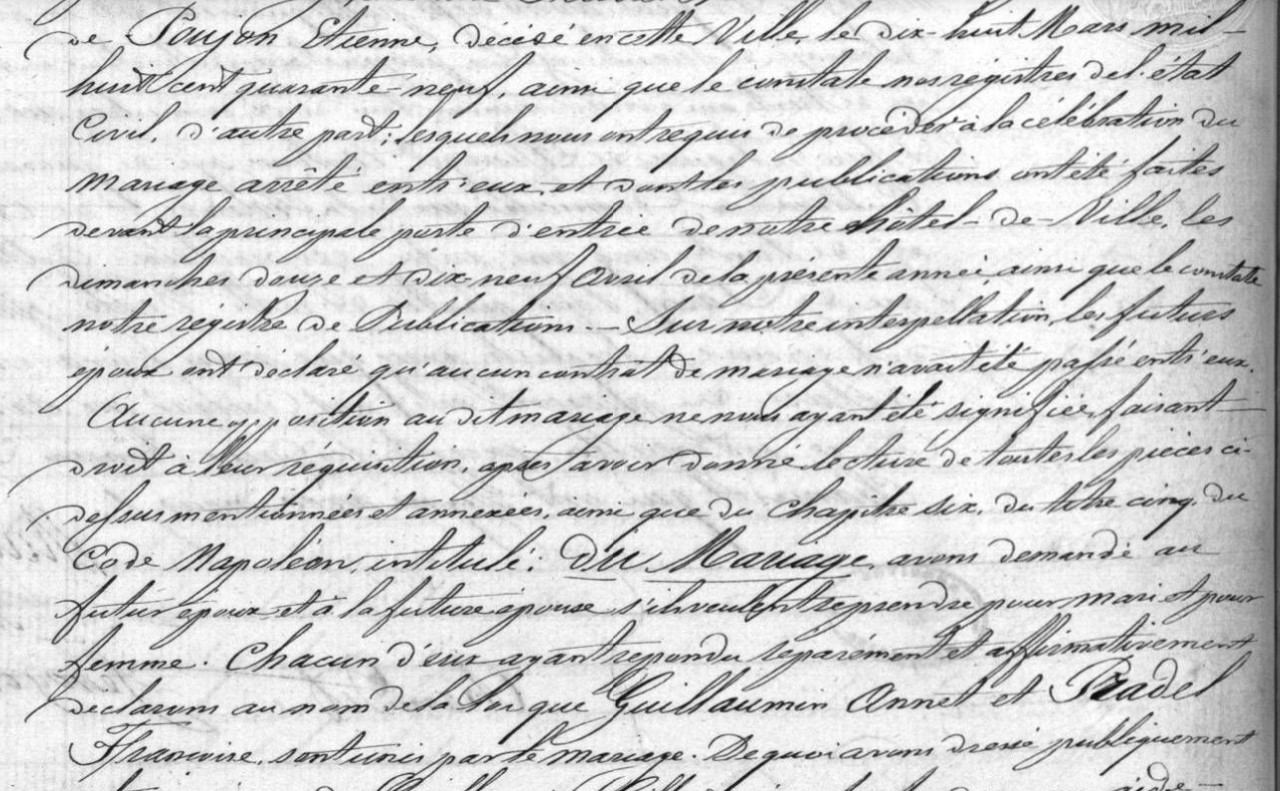 de Poujon Etienne, décédé en cette Ville, le dix-huit Mars mil-
huit cent quarante-neuf, ainsi que le constate nos régistres de l'état
Civil, d'autre part; lesquels nous ont requis de procéder à la célébration du
Mariage arrêté entr'eux et dont les publications ont été faites
devant la principale porte d'entrée de notre hôtel-de-Ville, les
dimanches douze et dix-neuf Avril de la présente année, ainsi que le constate
notre régistre de Publications. — Sur notre interpellation, les futurs
époux ont déclaré qu'aucun contrat de mariage n'avait été passé entr'eux.
Aucune opposition au dit mariage ne nous ayant été signifiée, faisant
droit à leur réquisition, après avoir donné lecture de toutes les pièces ci-
dessus mentionnées et annexées, ainsi que du chapitre six, du titre cinq, du
Code Napoléon, intitulé: du Mariage, avons demandé au
futur époux et à la future épouse s'ils veulent se prendre pour mari et pour
femme. Chacun d'eux ayant répondu séparément et affirmativement
déclarons au nom de la loi que Guillaumin Annet et Pradel
Françoise, sont unis par le mariage. De quoi avons dressé publiquement